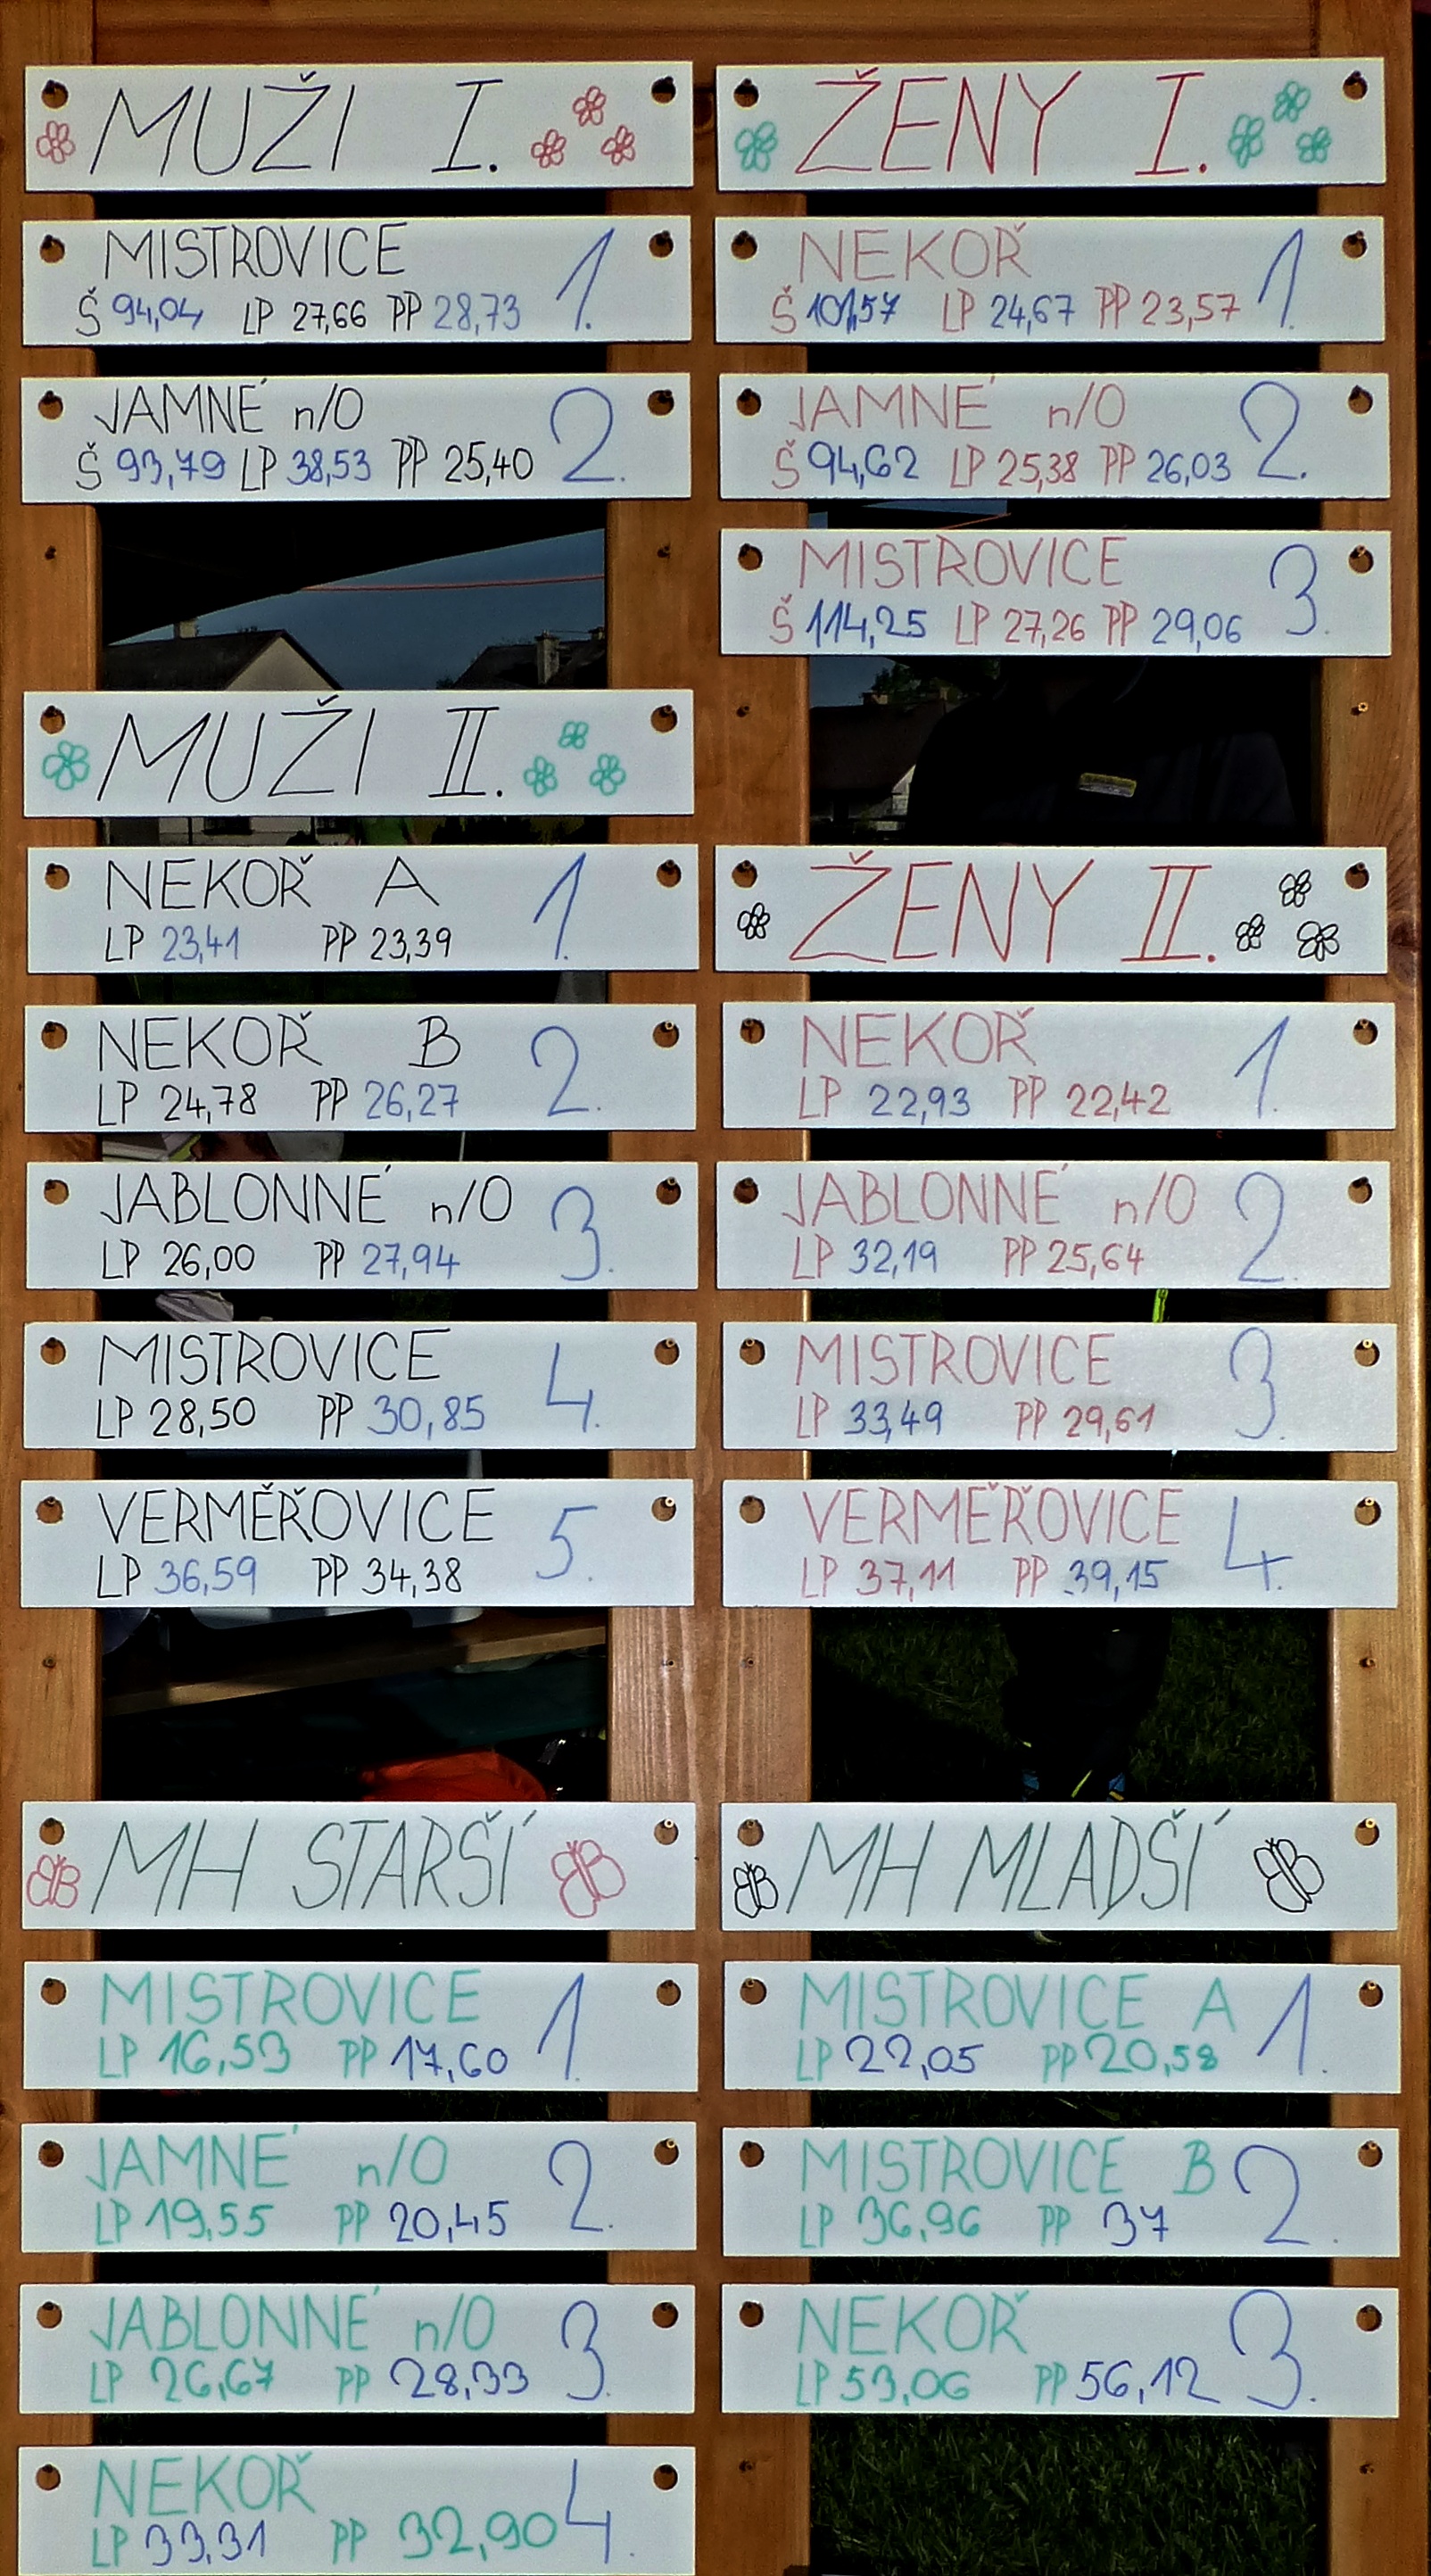 MUŽI I.
MISTROVICE 1.
Š 94,04 LP 27,66 PP 28,73
JAMNÉ n/O 2.
Š 93,79 LP 38,53 PP 25,40
MUŽI II.
NEKOŘ A 1.
LP 23,41 PP 23,39
NEKOŘ B 2.
LP 24,78 PP 26,27
JABLONNÉ n/O 3.
LP 26,00 PP 27,94
MISTROVICE 4.
LP 28,50 PP 30,85
VERMĚŘOVICE 5.
LP 36,59 PP 34,38
MH STARŠÍ
MISTROVICE 1.
LP 16,53 PP 17,60
JAMNÉ n/O 2.
LP 19,55 PP 20,45
JABLONNÉ n/O 3.
LP 26,67 PP 28,33
NEKOŘ 4.
LP 33,31 PP 32,90
ŽENY I.
NEKOŘ 1.
Š 101,57 LP 24,67 PP 23,57
JAMNÉ n/O 2.
Š 94,62 LP 25,38 PP 26,03
MISTROVICE 3.
Š 114,25 LP 27,26 PP 29,06
ŽENY II.
NEKOŘ 1.
LP 22,93 PP 22,42
JABLONNÉ n/O 2.
LP 32,19 PP 25,64
MISTROVICE 3.
LP 33,49 PP 29,61
VERMĚŘOVICE 4.
LP 37,11 PP 39,15
MH MLADŠÍ
MISTROVICE A 1.
LP 22,05 PP 20,58
MISTROVICE B 2.
LP 36,96 PP 37
NEKOŘ 3.
LP 53,06 PP 56,12